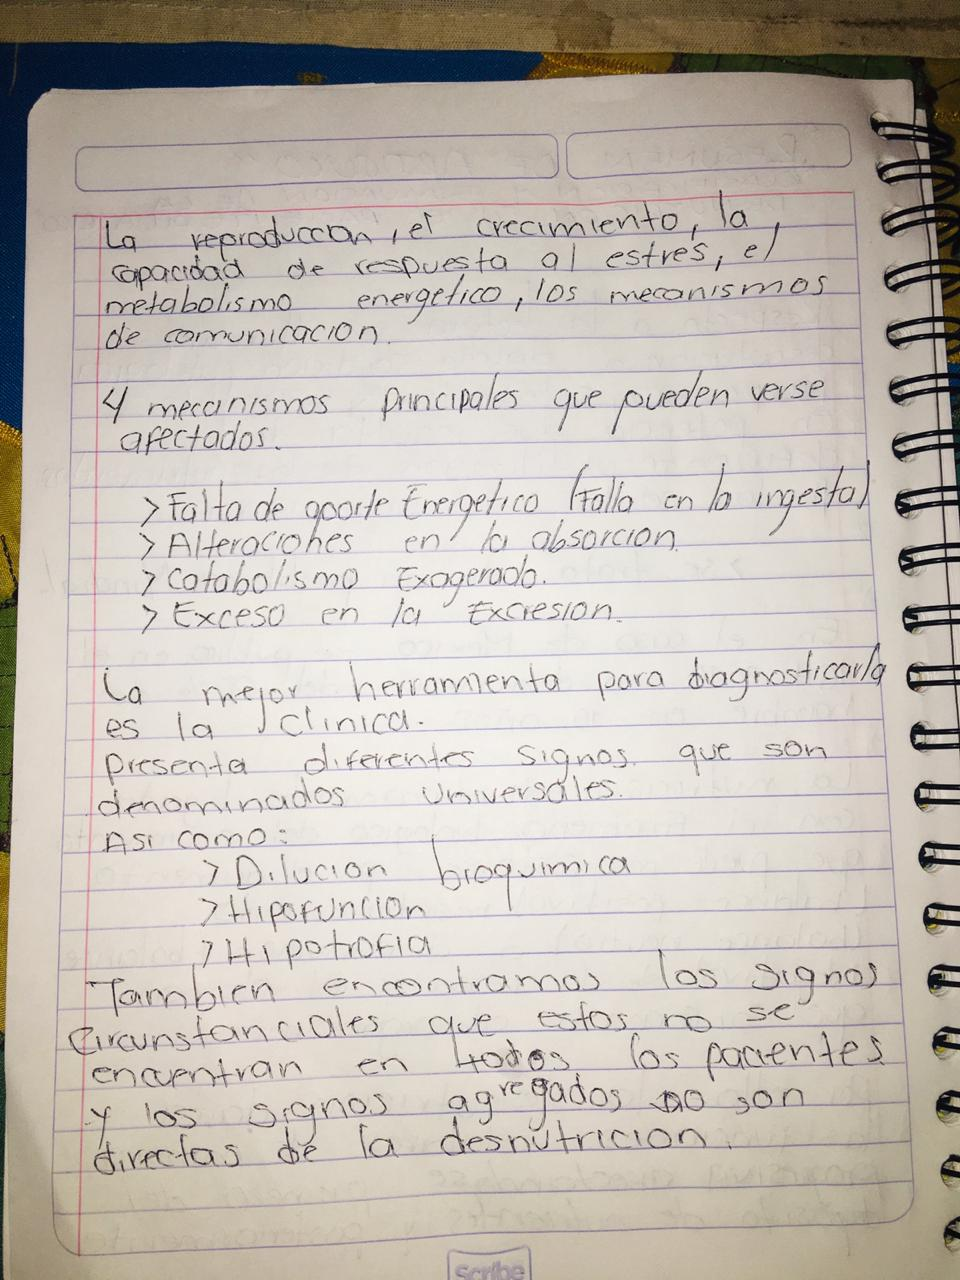 La reproduccion, el crecimiento, la,
capacidad de respuesta al estres, el
metabolismo energetico, los mecanismos
de comunicacion.
4 mecanismos principales que pueden verse
afectados.
> Falta de aporte Energetico (Falla en la ingesta)
> Alteraciones en la absorcion.
> Catabolismo Exagerado.
> Exceso en la Excresion.
La mejor herramienta para diagnosticarla
es la clinica.
presenta diferentes signos que son
denominados universales.
Asi como:
> Dilucion bioquimica
> Hipofuncion
> Hipotrofia
Tambien encontramos los signos
circunstanciales que estos no se
encuentran en todos los pacientes
y los signos agregados no son
directas de la desnutricion.
Scribe